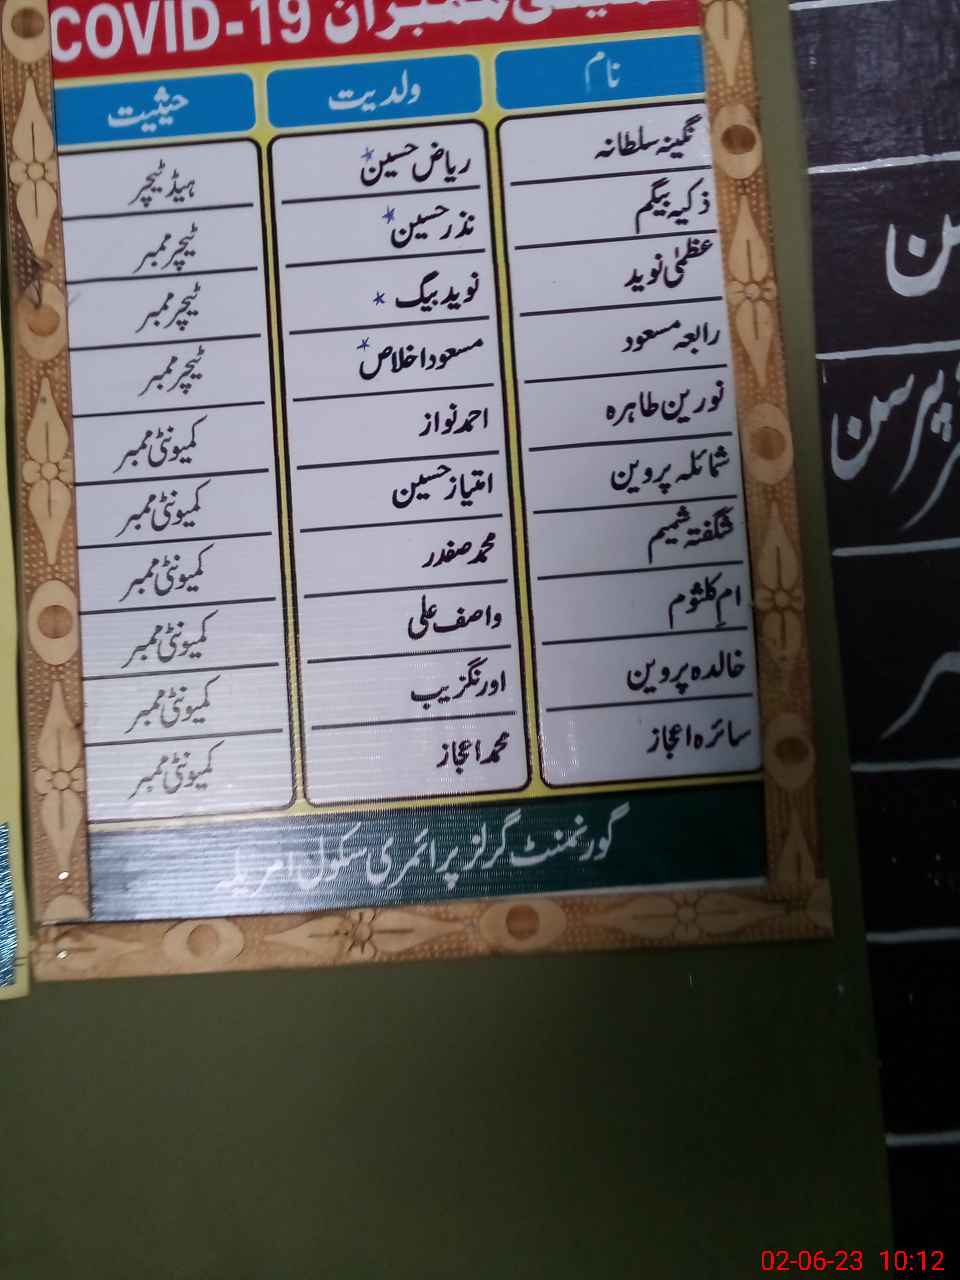 ممبران COVID-19
نام ولدیت حیثیت
نگینہ سلطانہ ریاض حسین* ہیڈ ٹیچر
ذکیہ بیگم نذر حسین* ٹیچر ممبر
عظمٰی نوید نوید بیگ* ٹیچر ممبر
رابعہ مسعود مسعود اخلاص* ٹیچر ممبر
نورین طاہرہ احمد نواز کمیونٹی ممبر
شمائلہ پروین امتیاز حسین کمیونٹی ممبر
شگفتہ شمیم محمد صفدر کمیونٹی ممبر
ام کلثوم واصف علی کمیونٹی ممبر
خالدہ پروین اورنگزیب کمیونٹی ممبر
سائرہ اعجاز محمد اعجاز کمیونٹی ممبر
گورنمنٹ گرلز پرائمری سکول
02-06-23 10:12